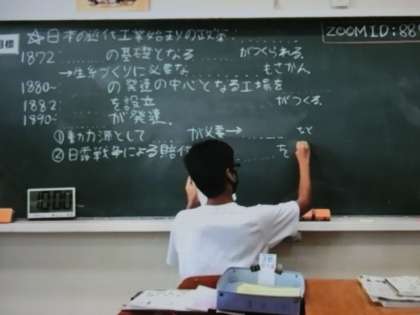 目標 ☆日本の近代工業始まりの政策: ZOOM ID:88
1872 ‥‥‥の基礎となる‥‥‥がつくられる.
→生糸づくりに必要な‥‥‥もさかん.
1880~‥‥の発達の中心となる工場を‥‥‥
1882:‥‥‥を設立‥‥‥がつくる.
1890~‥‥‥が発達.
①動力源として‥‥‥が必要→‥‥‥など
②日清戦争による賠償‥‥‥を